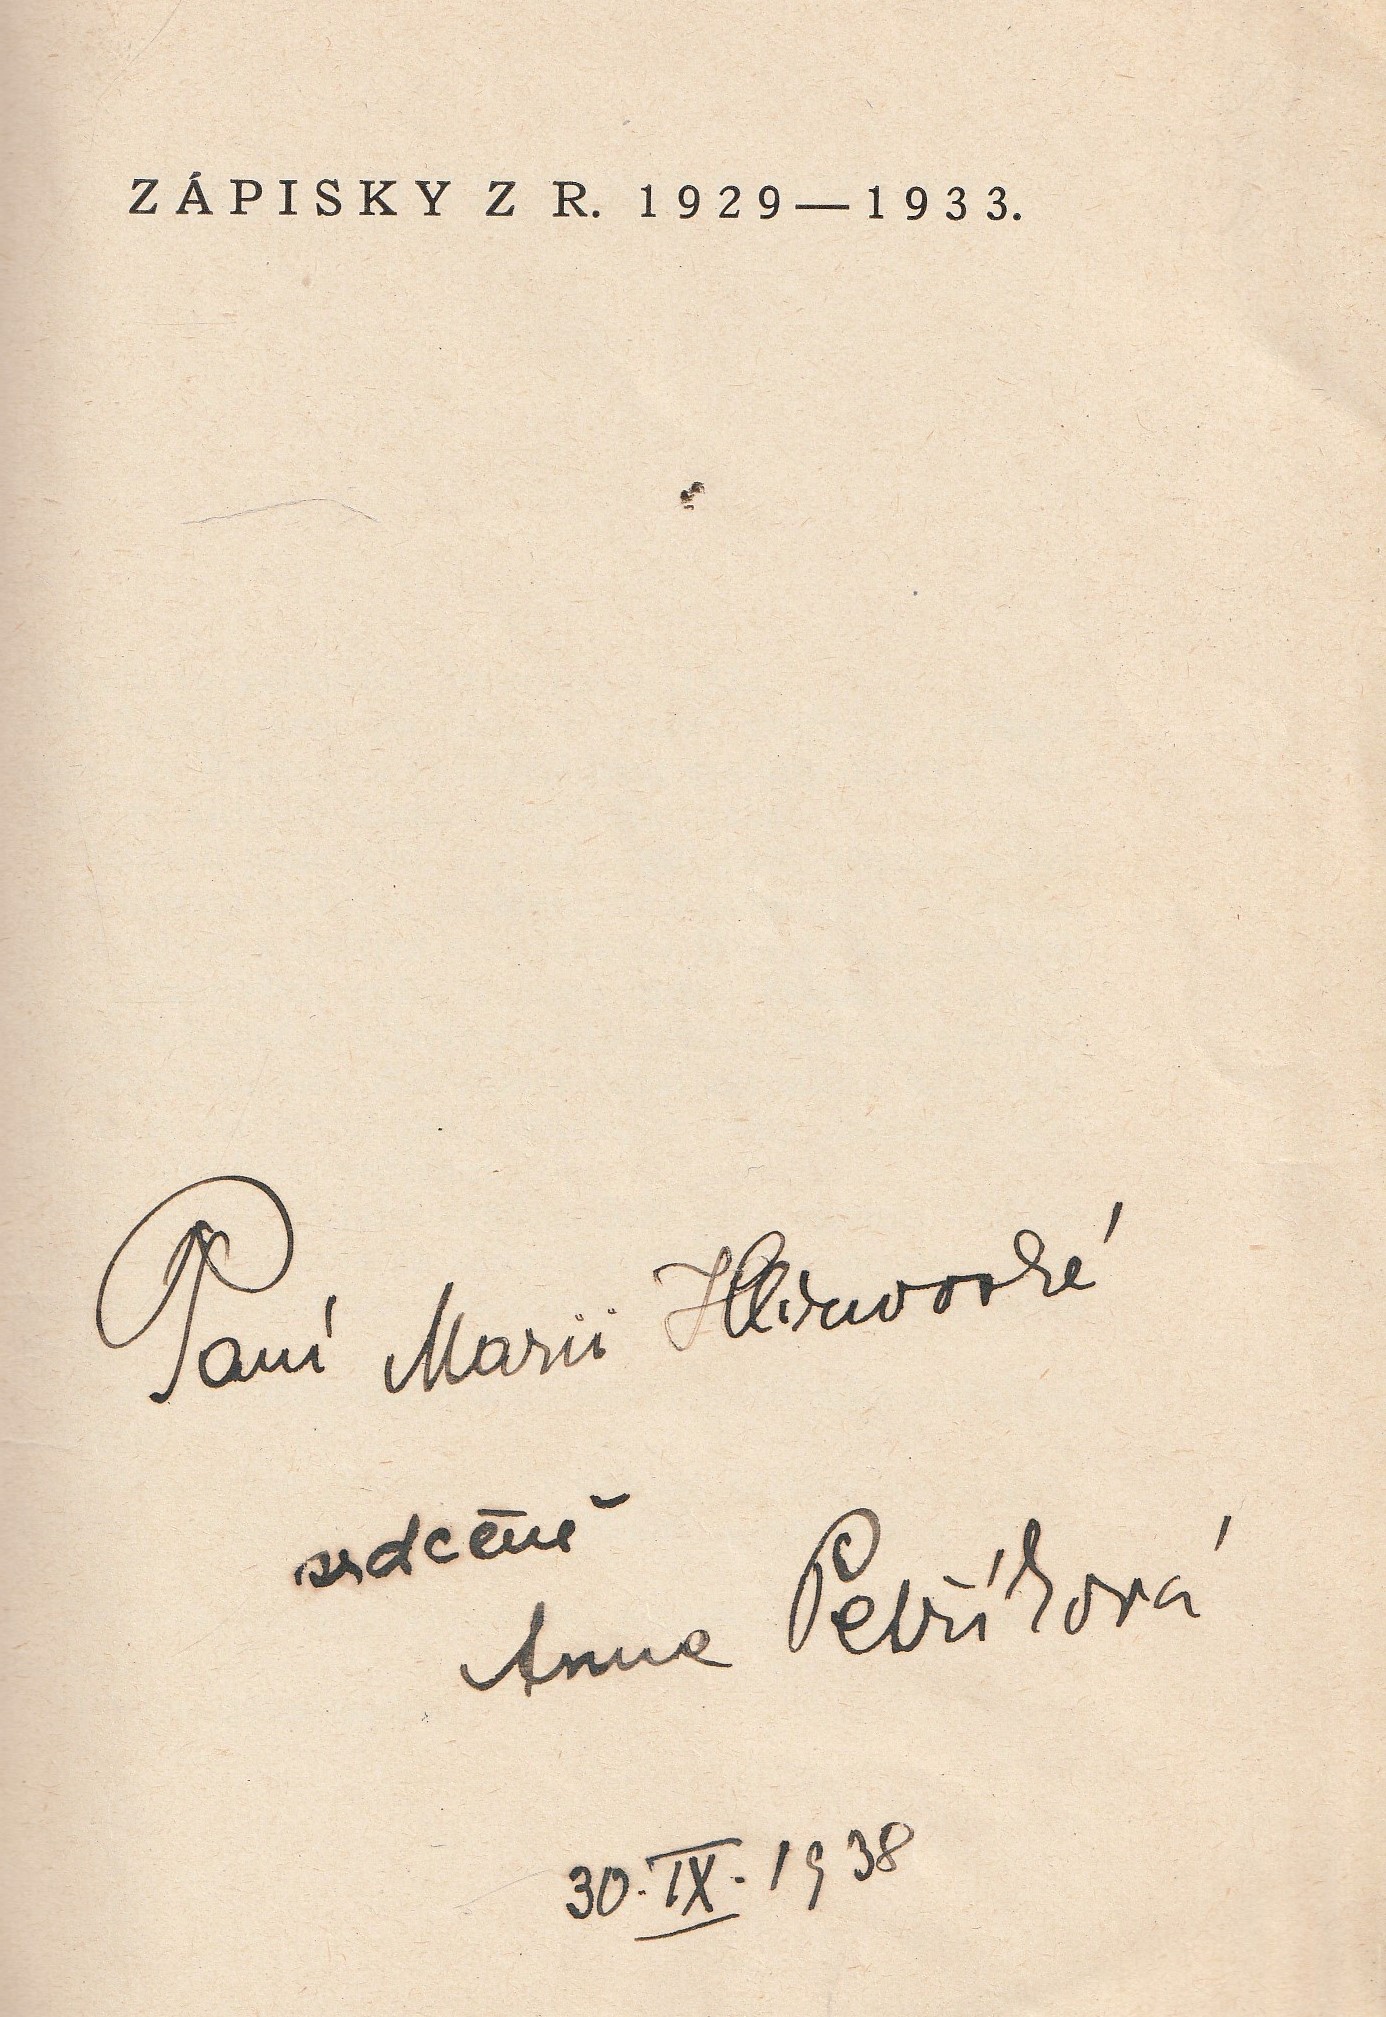 ZÁPISKY Z R. 1929—1933.
Paní Marii
srdečně
Anna Petříková
30. IX. 1938